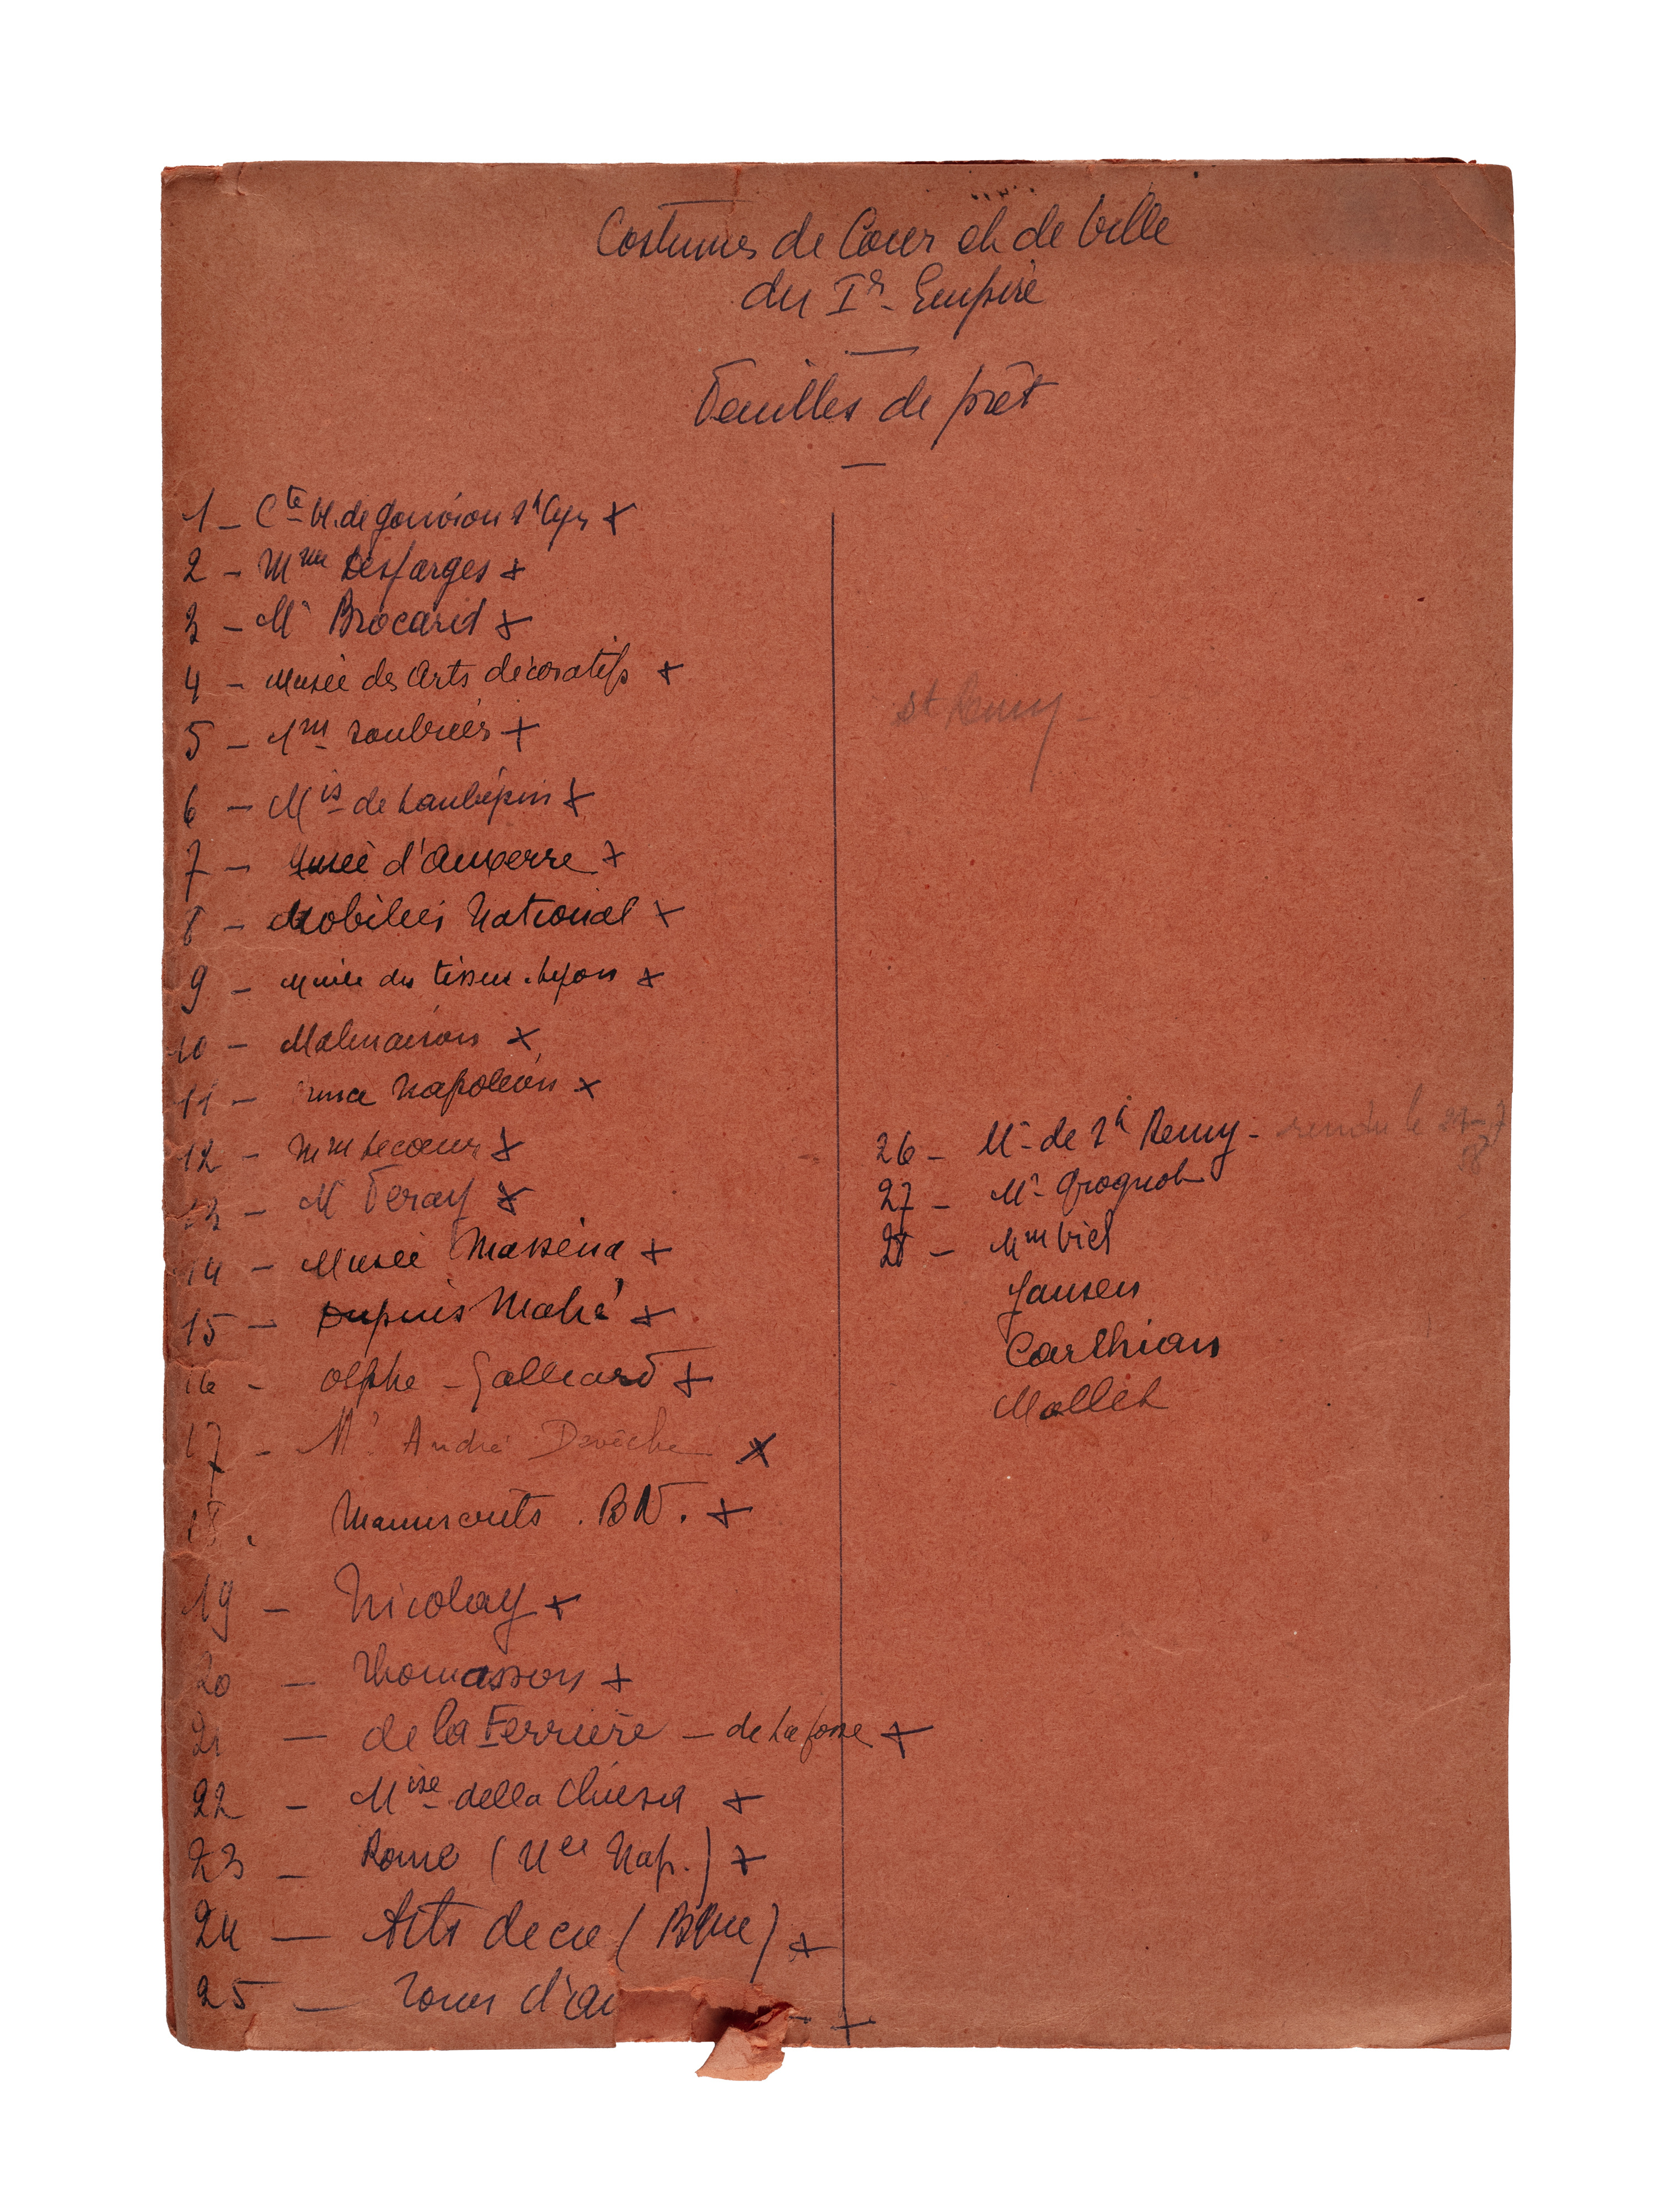 Costumes de Cour et de Ville
du Ier Empire
Feuilles de prêt
1 - Cte H. de Gouvion St Cyr x
2 - Mme Desfarges x
3 - Mr Brocard x
4 - Musée des Arts décoratifs x
5 - Mme x
6 - Mis de Laubépin x
7 - Musée d'Auxerre x
8 - Mobilier National x
9 - Musée des tissus. Lyon x
10 - Malmaison x
11 - Napoléon x
12 - Mme Lecoeur x
13 - Mr Feray x
14 - Musée Masséna x
15 - Dupuis Mahé x
16 - Olphe - Galliard x
17 - Mr André Devèche x
18. Manuscrits. BN. x
19 - Nicolay x
20 - Thomasson x
21 - de la Ferrière - de Lafosse x
22 - Mise della Chiesa x
23 - Rome (Nap.) x
24 - Arts deco (Bque) x
25 - x
St Remy -
26 - Mr de St Remy - rendu le
27 - Mr Grognot
28 - Mme Viel
Jansen
Carlhian
Mallet